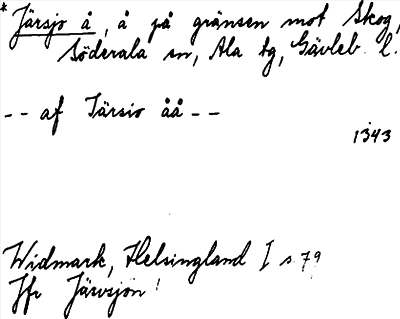 * Järsjo å, å på gränsen mot Skog,
Söderala sn, Ala tg, Gävleb. l.
-- af Iärsio åå --
1343
Widmark, Helsingland I s. 79
Jfr Järvsjön!